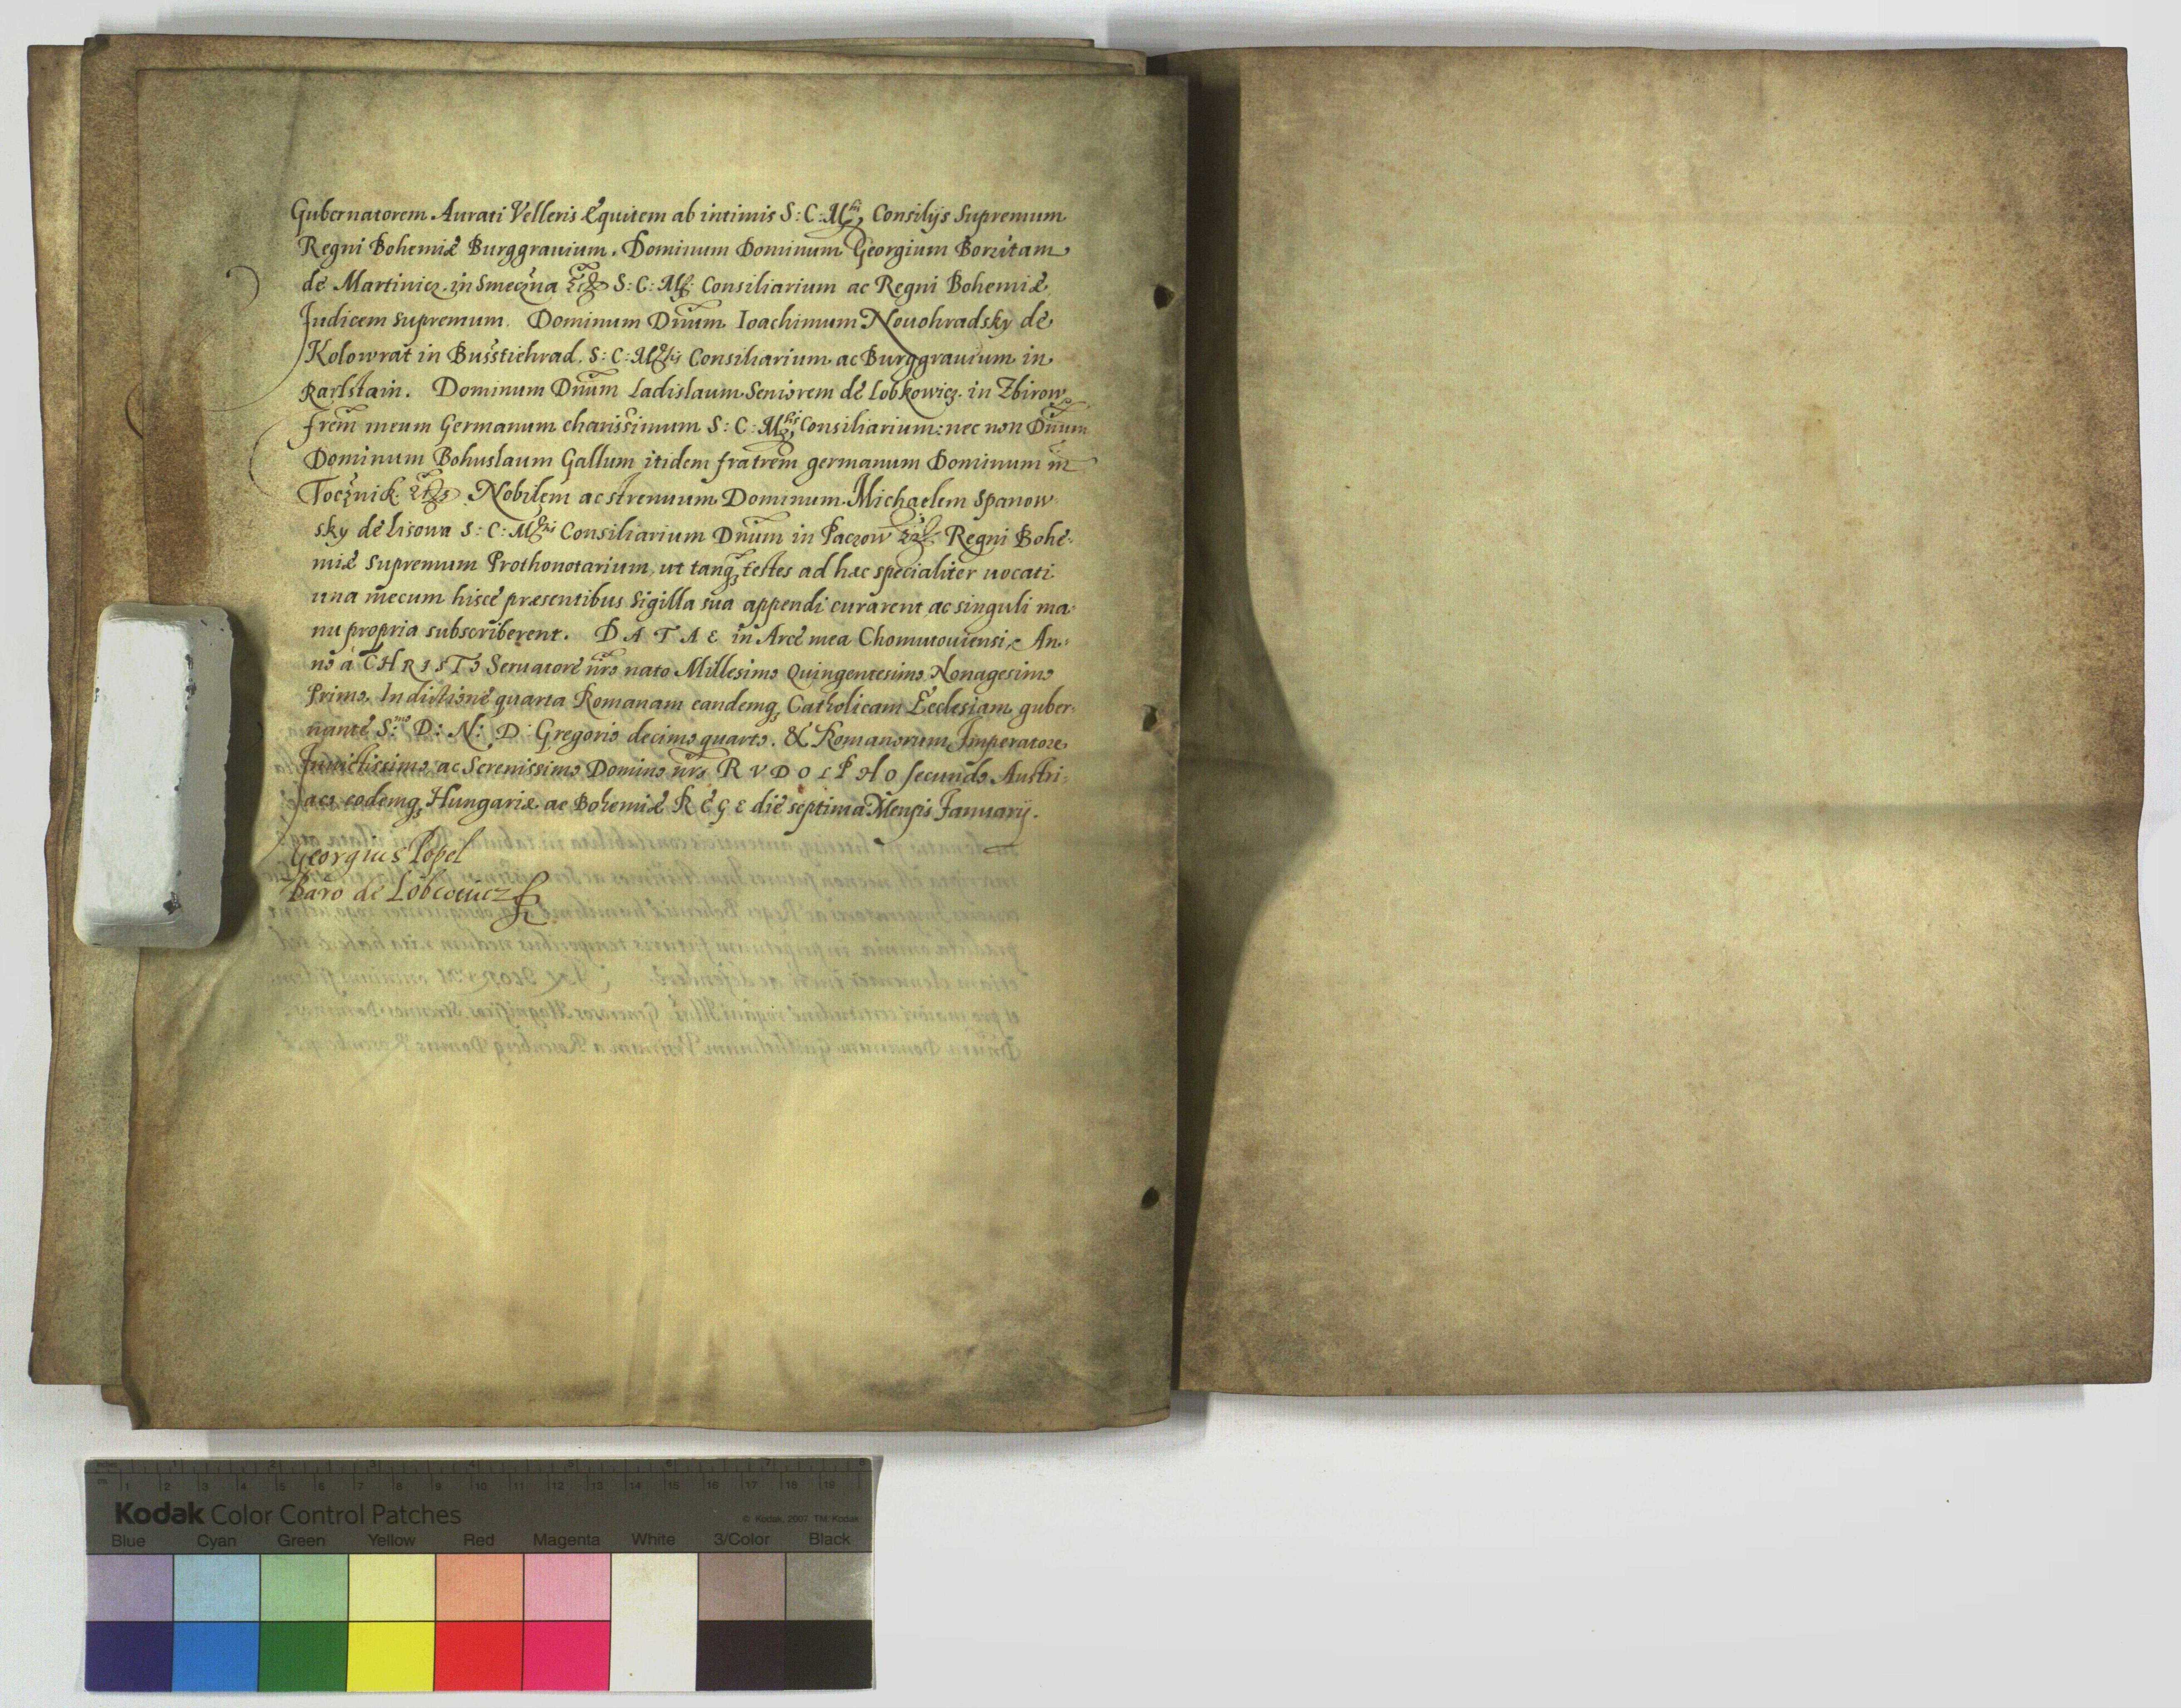 Gubernatorem Aurati Velleris Equitem ab intimis S: C: Mtis Consilijs Supremum
Regni Bohemiæ Burggrauium. Dominum Dominum Georgium Borzitam
de Martinicz in Smeczna etc S: C: Mtis Consiliarium ac Regni Bohemiæ
Judicem Supremum. Dominum Dnum Ioachimum Nouohradsky de
Kolowrat in Busstiehrad. S: C: Mtis Consiliarium ac Burggrauium in
Karlstain. Dominum Dnum Ladislaum Seniorem de Lobkowicz in Zbirow
frem meum Germanum charissimum S: C: Mtis Consiliarium: nec non Dnum
Dominum Bohuslaum Gallum itidem fratrem germanum Dominum in
Tocznick etc. Nobilem ac strenuum Dominum Michaelem Spanow
sky de Lisowa S: C: Mtis Consiliarium Dnum in Paczow etc Regni Bohe-
miæ Supremum Prothonotarium, ut tanq3 testes ad hæc specialiter uocati
una mecum hisce præsentibus Sigilla sua appendi curarent ac singuli ma-
nu propria subscriberent. DATAE in Arce mea Chomutouiensi, An-
no a CHRISTO Seruatore nro nato Millesimo Quingentesimo Nonagesimo
Primo, Indictione quarta Romanam eandemq3 Catholicam Ecclesiam guber-
nante S:mo D: N: D: Gregorio decimo quarto. & Romanorum Imperatore
Inuictissimo ac Serenissimo Domino nro RVDOLPHO secundo Austri-
aco eodemq3 Hungariæ ac Bohemiæ REGE die septima Mensis Ianuarij.
Georgius Popel
Baro de Lobcouicz
Kodak Color Control Patches
© Kodak, 2007 TM: Kodak
Blue Cyan Green Yellow Red Magenta White 3/Color Black